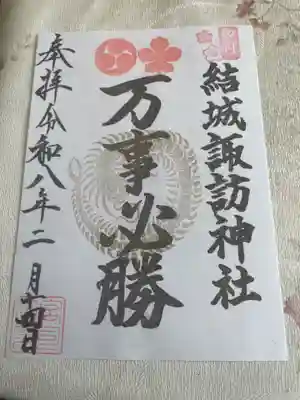 結城諏訪神社
万事必勝
奉拝令和八年二月十四日